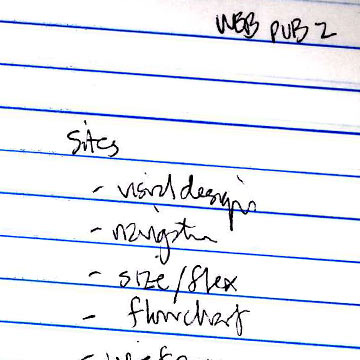 WEB PUB 2
Sites
- visual design
- navigation
- size/flex
- flowchart